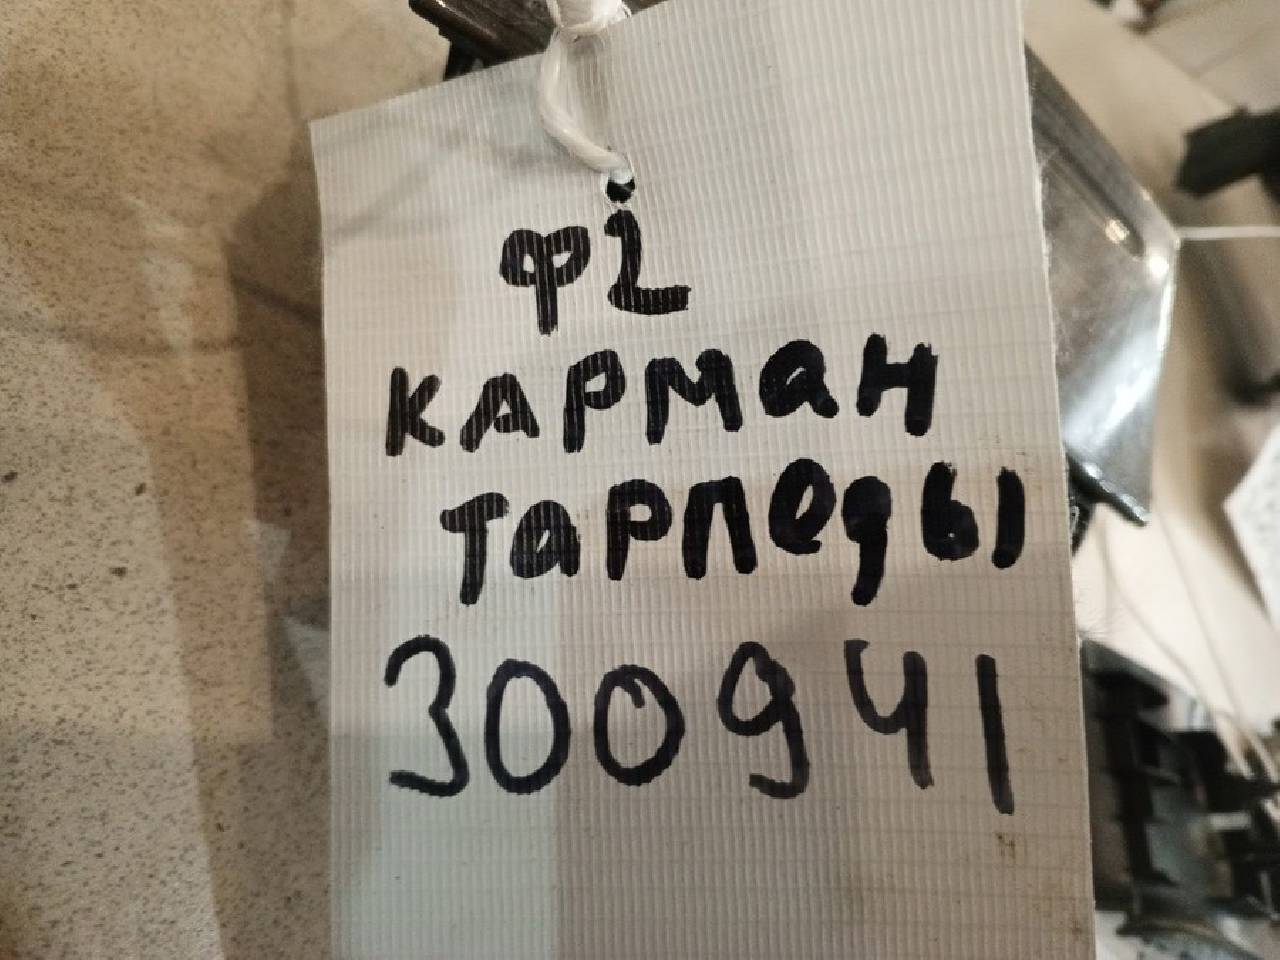 Ф2
КАРМАН
ТАРПЕДЫ
300941